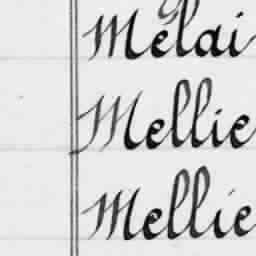 Melai
Mellie
Mellie